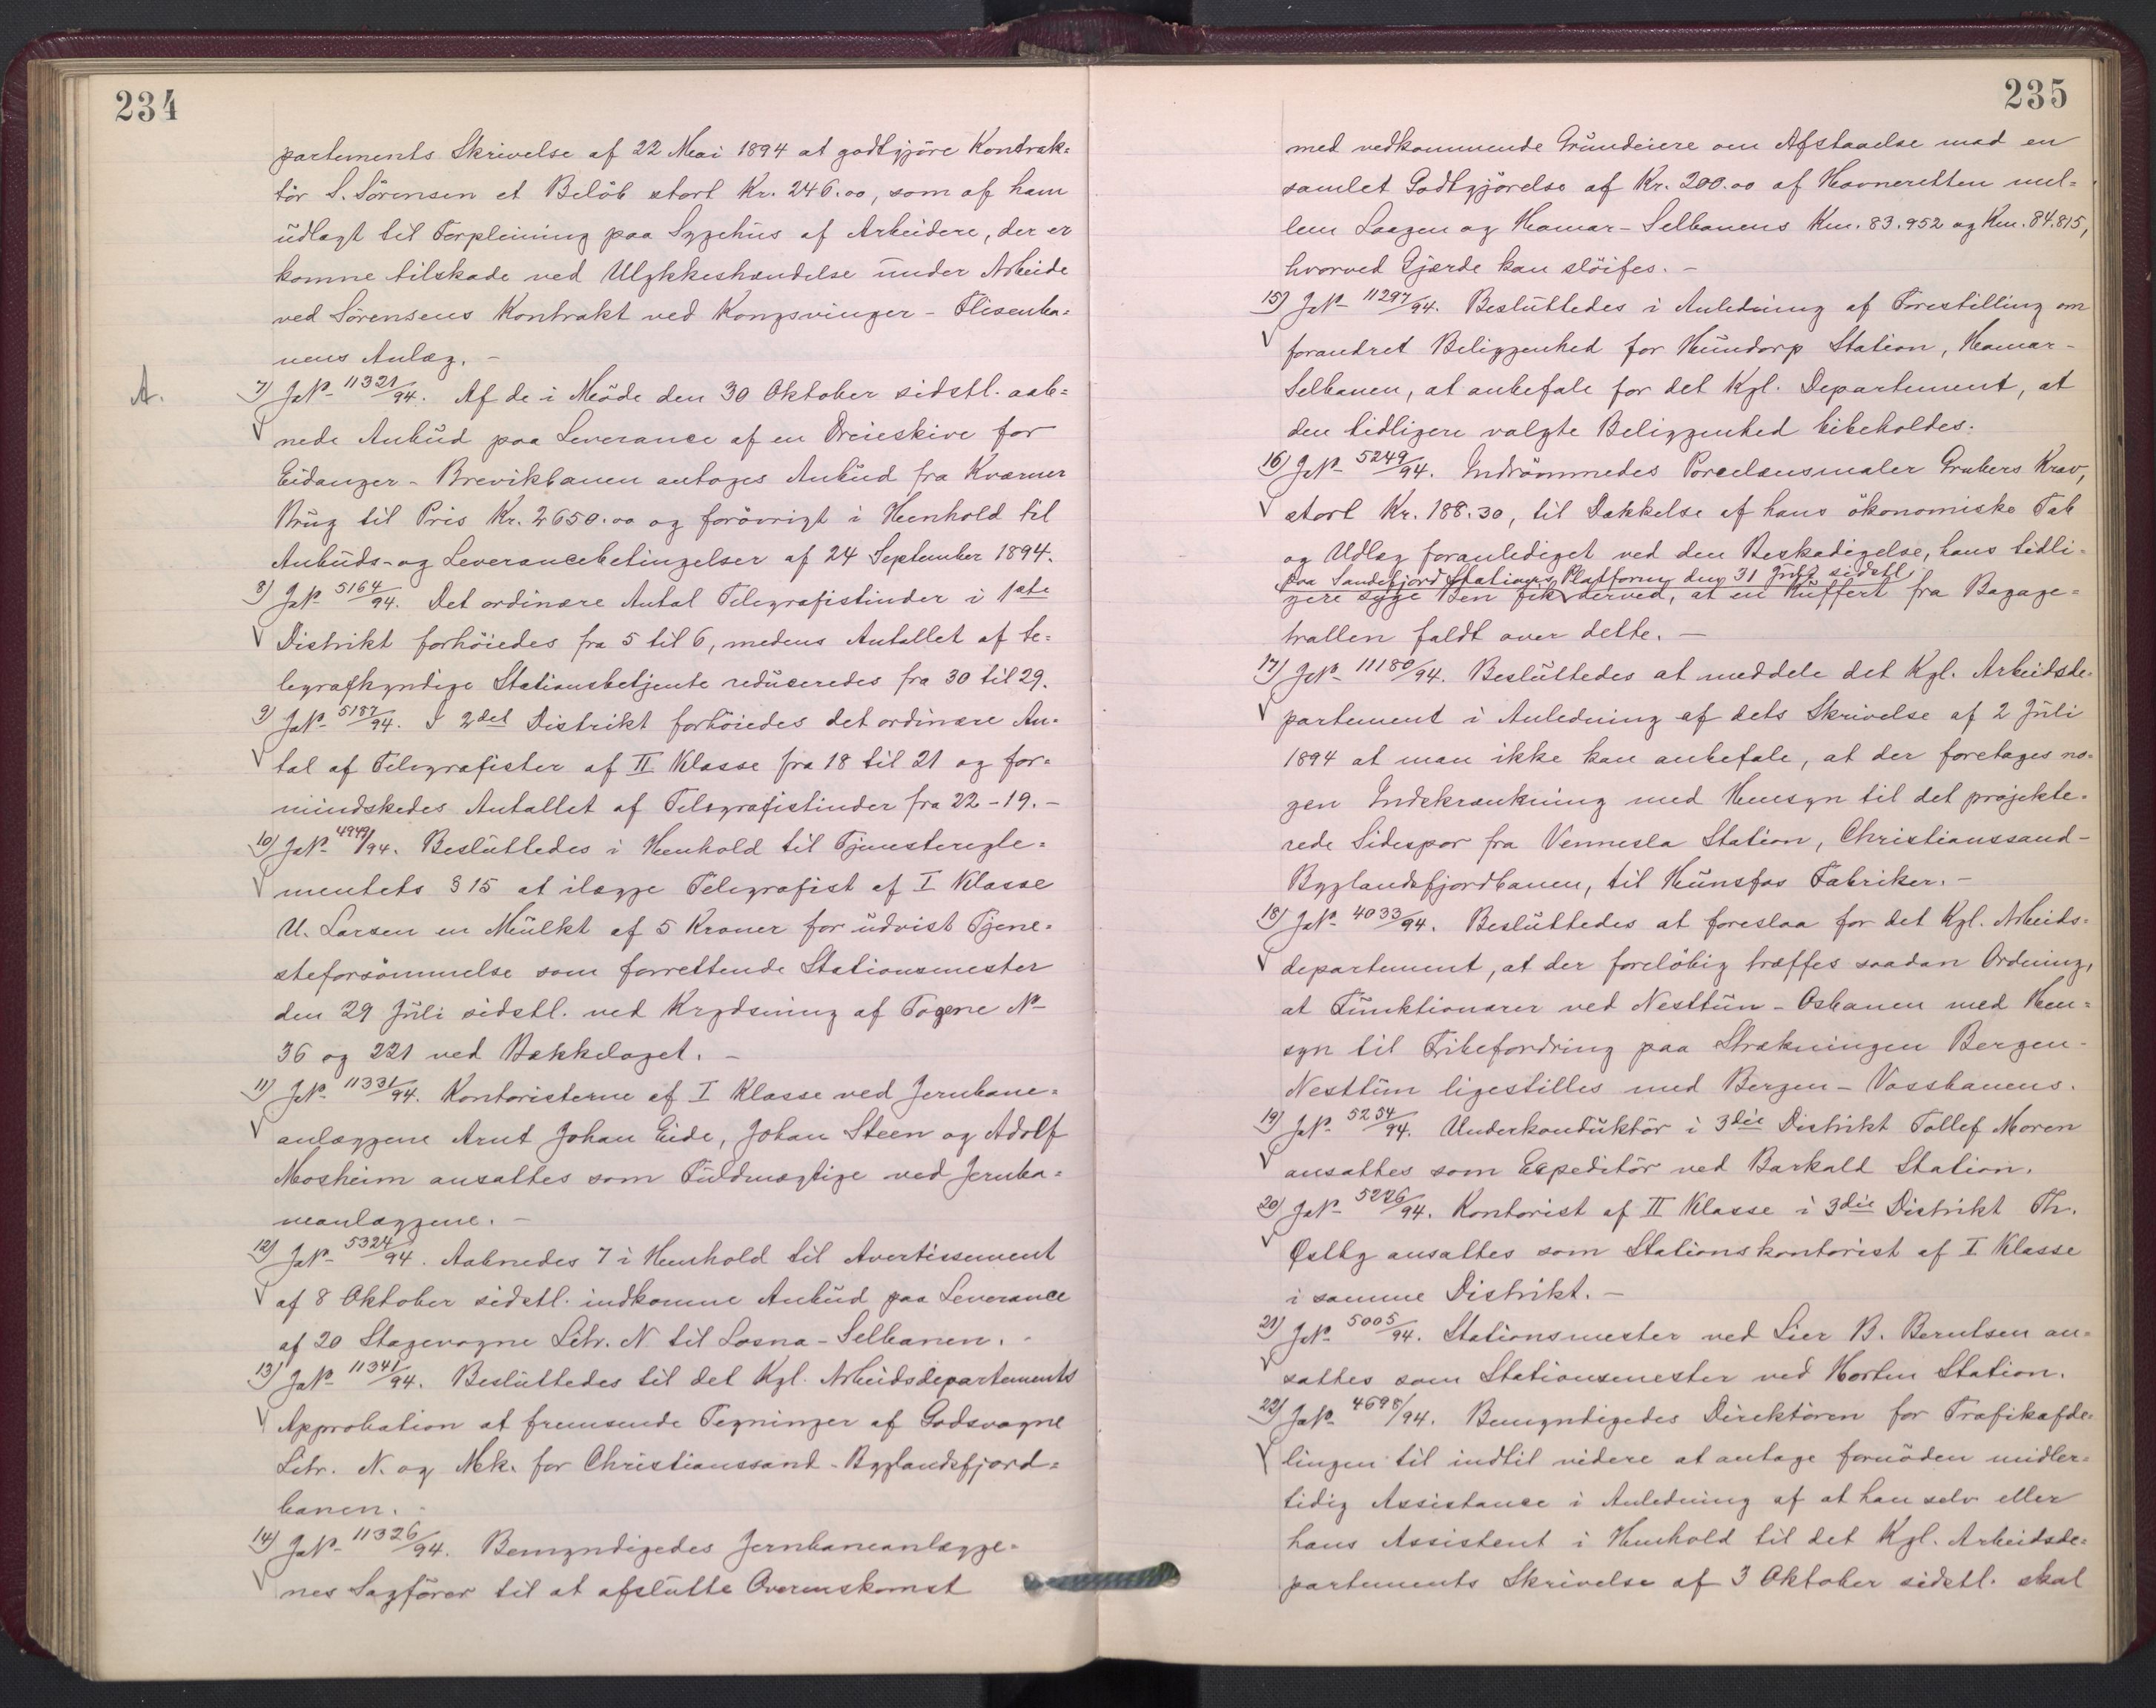 234
partements Skrivelse af 22 Mai 1894 at godtgjöre Kontrak=
tör S. Sörensen et Belöb stort Kr. 246.00, som af ham
udlagt til Forpleining paa Sygehus af Arbeidere, der er
komne tilskade ved Ulykkeshændelse under Arbeide
ved Sörensens Kontrakt ved Kongsvinger - Flisenba=
nens Anlæg. -
A.
7) JN° 11321/94. Af de i Möde den 30 Oktober sidstl. aab=
nede Anbud paa Leverance af en Dreieskive for
Eidanger - Brevikbanen antoges Anbud fra Kværner
Brug til Pris Kr. 2650.00 og forövrigt i Henhold til
Anbuds- og Leverancebetingelser af 24 September 1894.
8) JN° 5164/94. Det ordinære Antal Telegrafistinder i 1ste
Distrikt forhöiedes fra 5 til 6, medens Antallet af te=
legrafkyndige Stationsbetjente reduceredes fra 30 til 29.
9) JN° 5187/94. I 2det Distrikt forhöiedes det ordinære An=
tal af Telegrafister af II Klasse fra 18 til 21 og for=
mindskedes Antallet af Telegrafistinder fra 22 - 19. -
10) JN° 4949/94. Besluttedes i Henhold til Tjenesteregle=
mentets § 15 at ilægge Telegrafist af I Klasse
U. Larsen en Mulkt af 5 Kroner for udvist Tjene=
steforsömmelse som forrettende Stationsmester
den 29 Juli sidstl. ved Krydsning af Togene N°
36 og 221 ved Bækkelaget. -
11) JN° 11331/94. Kontoristerne af I Klasse ved Jernbane=
anlæggene Arnt Johan Eide, Johan Steen og Adolf
Mosheim ansattes som Fuldmægtige ved Jernba=
neanlæggene. -
12) JN° 5324/94. Aabnedes 7 i Henhold til Avertissement
af 8 Oktober sidstl. indkomne Anbud paa Leverance
af 20 Stagevogne Litr. N til Losna - Selbanen. -
13) JN° 11341/94. Besluttedes til det Kgl. Arbeidsdepartements
Approbation at fremsende Tegninger af Godsvogne
Litr. N. og Nk. for Christianssand - Byglandsfjord=
banen. -
14) JN° 11326/94. Bemyndigedes Jernbaneanlægge=
nes Sagförer til at afslutte Overenskomst
235
med vedkommende Grundeiere om Afstaaelse mod en
samlet Godtgjörelse af Kr. 200.00 af Havneretten mel=
lem Laagen og Hamar - Selbanens Km. 83.952 og Km. 84.815,
hvorved Gjærde kan slöifes. -
15) JN° 11297/94. Besluttedes i Anledning af Forestilling om
forandret Beliggenhed for Hundorp Station, Hamar -
Selbanen, at anbefale for det Kgl. Departement, at
den tidligere valgte Beliggenhed bibeholdes.
16) JN° 5249/94. Indrömmedes Porcelænsmaler Grubers Krav,
stort Kr. 188.30, til Dækkelse af hans ökonomiske Tab
og Udlæg foranlediget ved den Beskadigelse, hans tidli=
paa Sandefjord Stations Platform den 31 Juli sidstl.
gere syge Ben fik derved, at en Kuffert fra Bagage=
trallen faldt over dette. -
17) JN° 11180/94. Besluttedes at meddele det Kgl. Arbeidsde=
partement i Anledning af dets Skrivelse af 2 Juli
1894 at man ikke kan anbefale, at der foretages no=
gen Indskrænkning med Hensyn til det projekte=
rede Sidespor fra Vennesla Station, Christianssand -
Byglandsfjordbanen, til Hunsfos Fabriker. -
18) JN° 4033/94. Besluttedes at foreslaa for det Kgl. Arbeids=
departement, at der forelöbig træffes saadan Ordning,
at Funktionærer ved Nesttun - Osbanen med Hen=
syn til Fribefordring paa Strækningen Bergen -
Nesttun ligestilles med Bergen - Vossbanens.
19) JN° 5254/94. Underkonduktör i 3die Distrikt Tollef Moren
ansattes som Expeditör ved Barkald Station.
20) JN° 5226/94. Kontorist af II Klasse i 3die Distrikt Th.
Østby ansattes som Stationskontorist af I Klasse
i samme Distrikt. -
21) JN° 5005/94. Stationsmester ved Lier B. Berntsen an=
sattes som Stationsmester ved Horten Station.
22) JN° 4698/94. Bemyndigedes Direktören for Trafikafde=
lingen til indtil videre at antage fornöden midler=
tidig Assistance i Anledning af at han selv eller
hans Assistent i Henhold til det Kgl. Arbeidsde=
partements Skrivelse af 3 Oktober sidstl. skal